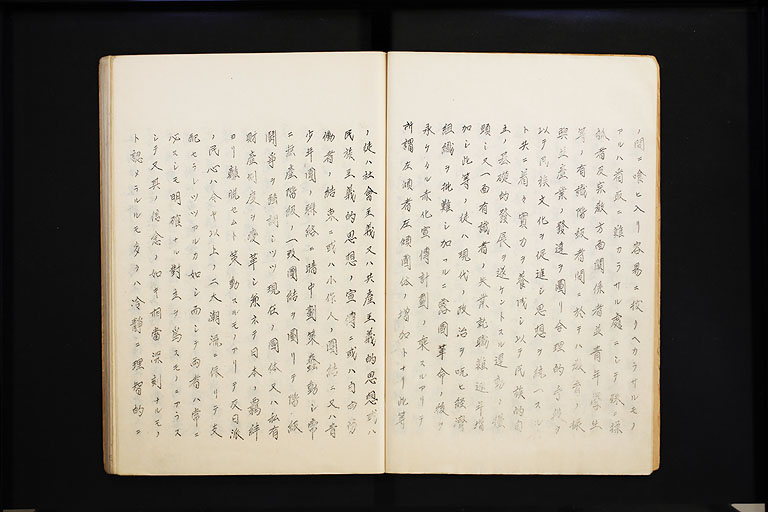 ノ間ニ喰ヒ入リ容易ニ拔クヘカラサルモノ
アルハ看取ニ難カラサル處ニシテ殊ニ操
觚者及宗敎方面關係者並靑年學生
等ノ有識階級者間ニ於テハ敎育ノ振
興、產業ノ發達ヲ圖リ合理的手段ヲ
以テ民族文化ヲ促進シ思想ヲ統一スル
ト共ニ着々實力ヲ養成シ以テ民族的自
主ノ基礎的發展ヲ遂ケントスル運動ノ擡
頭シ又一面有識者ノ失業就職難逐年增
加シ此等ノ徒ハ現代ノ政治ヲ呪ヒ經濟
組織ヲ批難シ加フルニ露國革命ノ後ヲ
承ケタル赤化宣傳計劃ノ乘スルアリテ
所謂左傾者左傾團体ノ增加トナリ此等
ノ徒ハ社會主義又ハ共產主義的思想或ハ
民族主義的思想ノ宣傳ニ或ハ內面勞
働者ノ結束ニ或ハ小作人ノ團結ニ又ハ靑
少年團ノ聯絡ニ暗中劃策蠢動シ常
ニ無產階級ノ一致團結ヲ圖リテ階級
鬪爭ヲ强調シツツ現在ノ國体又ハ私有
財產制度ヲ變革シ兼ネテ日本ノ羈絆
ヨリ離脫セムト策動スルモノアリテ反日派
ノ民心ハ今ヤ以上ノ二大潮流ニ依リテ支
配セラレツツアルカ如シ而シテ兩者ハ常ニ
必スシモ明確ナル對立ヲ爲スモノニアラス
シテ又其ノ信念ノ如キ相當深刻ナルモノ
ト認メラルルモ多クハ冷靜ニ理智的ニ